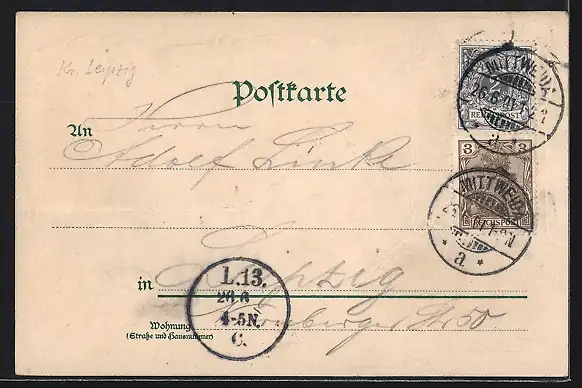 Kr. Leipzig
Postkarte
MITTWEIDA
26.6.
2
REICHSPOST
a
An
Herrn
Adolf Linke
3 3
MITTWEIDA
REICHSPOST
* a *
in Leipzig
L.13.
26.6
4-5N.
C.
Wohnung
(Straße und Hausnummer)
Str 50